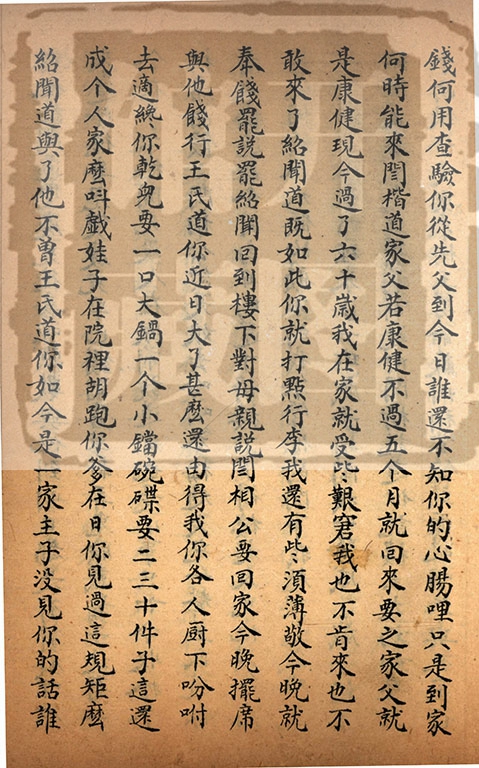 錢何用查驗你從先父到今日誰還不知你的心腸哩只是到家
何時能來閆楷道家父若康健不過五个月就回來要之家父就
是康健現今過了六十歲我在家就受些艱窘我也不肯來也不
敢來了紹聞道既如此你就打點行李我還有些須薄敬今晚就
奉餞罷說罷紹聞回到樓下對母親說閆相公要回家今晚擺席
與他餞行王氏道你近日大了甚麽還由得我你各人厨下吩咐
去適纔你乾兒要一口大鍋一个小鐺碗碟要二三十件子這還
成个人家麽呌戱娃子在院裡胡跑你爹在日你見過這規矩麽
紹聞道與了他不曾王氏道你如今是一家主子没見你的話誰